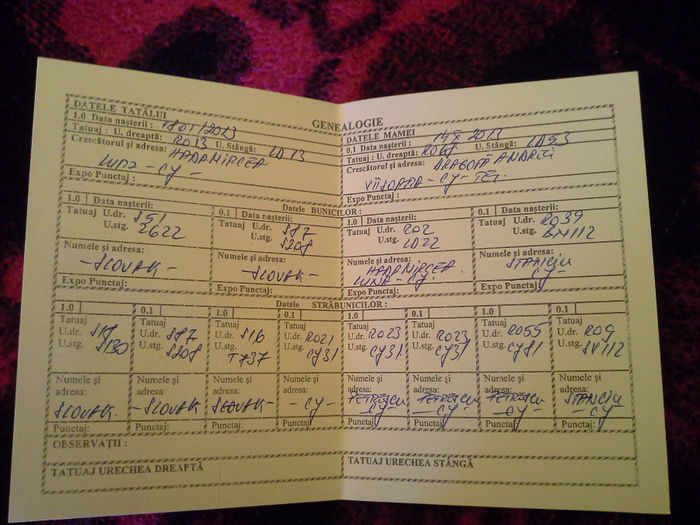 GENEALOGIE
DATELE TATĂLUI
1.0 Data nașterii : 2013
Tatuaj : U. dreaptă: RO13 U. Stângă: LD13
Crescătorul și adresa: HADA MIRCEA
LUNA - CJ -
Expo Punctaj :
DATELE MAMEI
0.1 Data nașterii : 2013
Tatuaj : U. dreaptă: U. Stângă: LD53
Crescătorul și adresa: DRAGOTA ANDREI
VIIȘOARA - CJ - TEL.
Expo Punctaj :
Datele BUNICILOR :
1.0 Data nașterii: 0.1 Data nașterii: 1.0 Data nașterii: 0.1 Data nașterii:
Tatuaj U.dr. S51 Tatuaj U.dr. S87 Tatuaj U.dr. RO2 Tatuaj U.dr. RO39
U.stg. 2622 U.stg. S208 U.stg. LD22 U.stg. BN112
Numele și adresa: Numele și adresa: Numele și adresa: Numele și adresa:
-SLOVAK- -SLOVAK- HADA MIRCEA STANCIU
LUNA - CJ - CJ -
Expo Punctaj: Expo Punctaj: Expo Punctaj: Expo Punctaj:
Datele STRĂBUNICILOR :
1.0 0.1 1.0 0.1 1.0 0.1 1.0 0.1
Tatuaj Tatuaj Tatuaj Tatuaj Tatuaj Tatuaj Tatuaj Tatuaj
U.dr. U.dr. S87 U.dr. S16 U.dr. RO21 U.dr. RO23 U.dr. RO23 U.dr. RO55 U.dr. RO9
U.stg. S130 U.stg. S208 U.stg. T737 U.stg. CJ31 U.stg. CJ31 U.stg. CJ31 U.stg. CJ81 U.stg. SV112
Numele și Numele și Numele și Numele și Numele și Numele și Numele și Numele și
adresa: adresa: adresa: adresa: adresa: adresa: adresa: adresa:
SLOVAK. -SLOVAK SLOVAK- - CJ - PETRESCU PETRESCU PETRESCU STANCIU
-CJ- -CJ- -CJ- -CJ-
Punctaj: Punctaj: Punctaj: Punctaj: Punctaj: Punctaj: Punctaj: Punctaj:
OBSERVAȚII :
TATUAJ URECHEA DREAPTĂ TATUAJ URECHEA STÂNGĂ